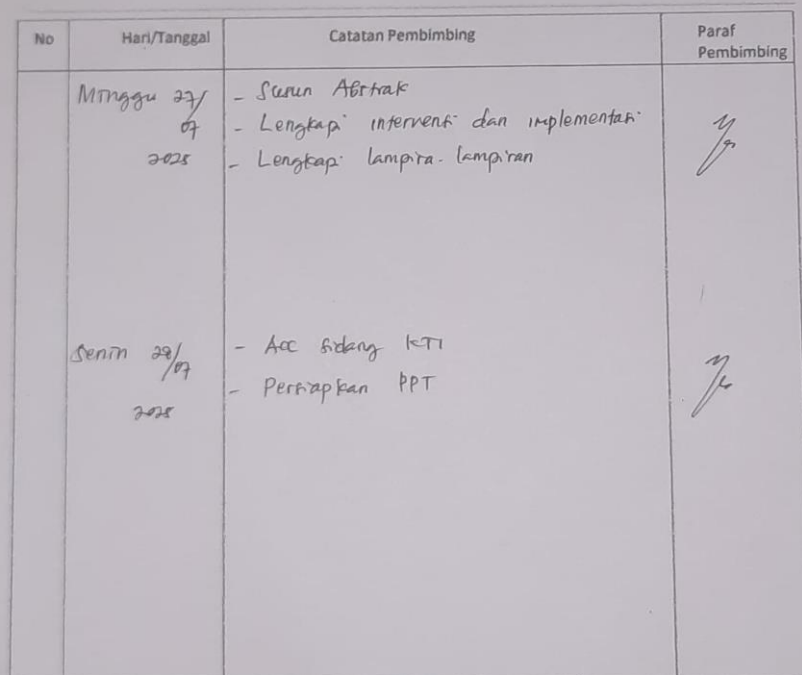 No Hari/Tanggal Catatan Pembimbing Paraf Pembimbing
Minggu 27/07 2025
- Susun Abstrak
- Lengkapi intervensi dan implementasi
- Lengkapi lampira-lampiran
Senin 28/07 2025
- Acc sidang KTI
- Persiapkan PPT